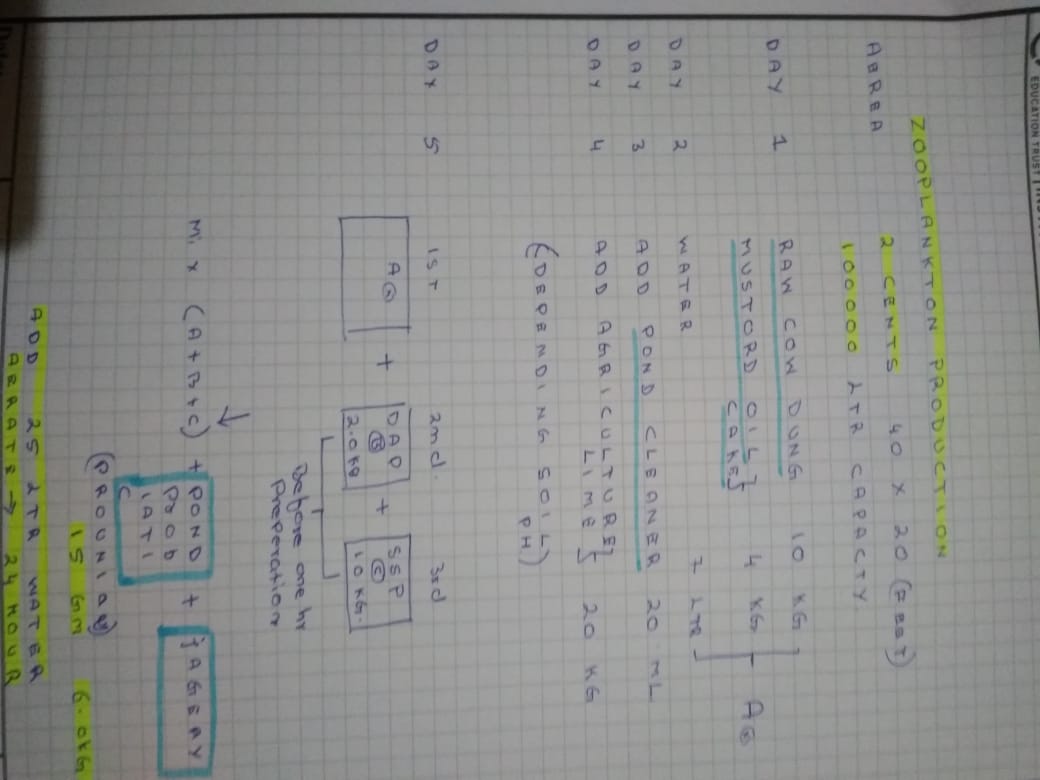 EDUCATION TRUST
ZOOPLANKTON PRODUCTION
AEREA 2 CENTS 40 X 20 (FEET)
100000 LTR CAPACTY
DAY 1 RAW COW DUNG 10 KG
MUSTORD OIL 4 KG A
CAKE
DAY 2 WATER 7 LTR
DAY 3 ADD POND CLEANER 20 ML
DAY 4 ADD AGRICULTURE
LIME 20 KG
(DEPENDING SOIL
PH)
DAY 5 1ST 2nd. 3rd
A + DAP + SSP
B C
2.0 KG 10 KG.
Before one hr
Preperation
↓
Mix (A+B+C) + POND + JAGERY
Prob
IATI
C
15 GM 6.0KG
ADD 25 LTR WATER
AERATE → 24 HOUR